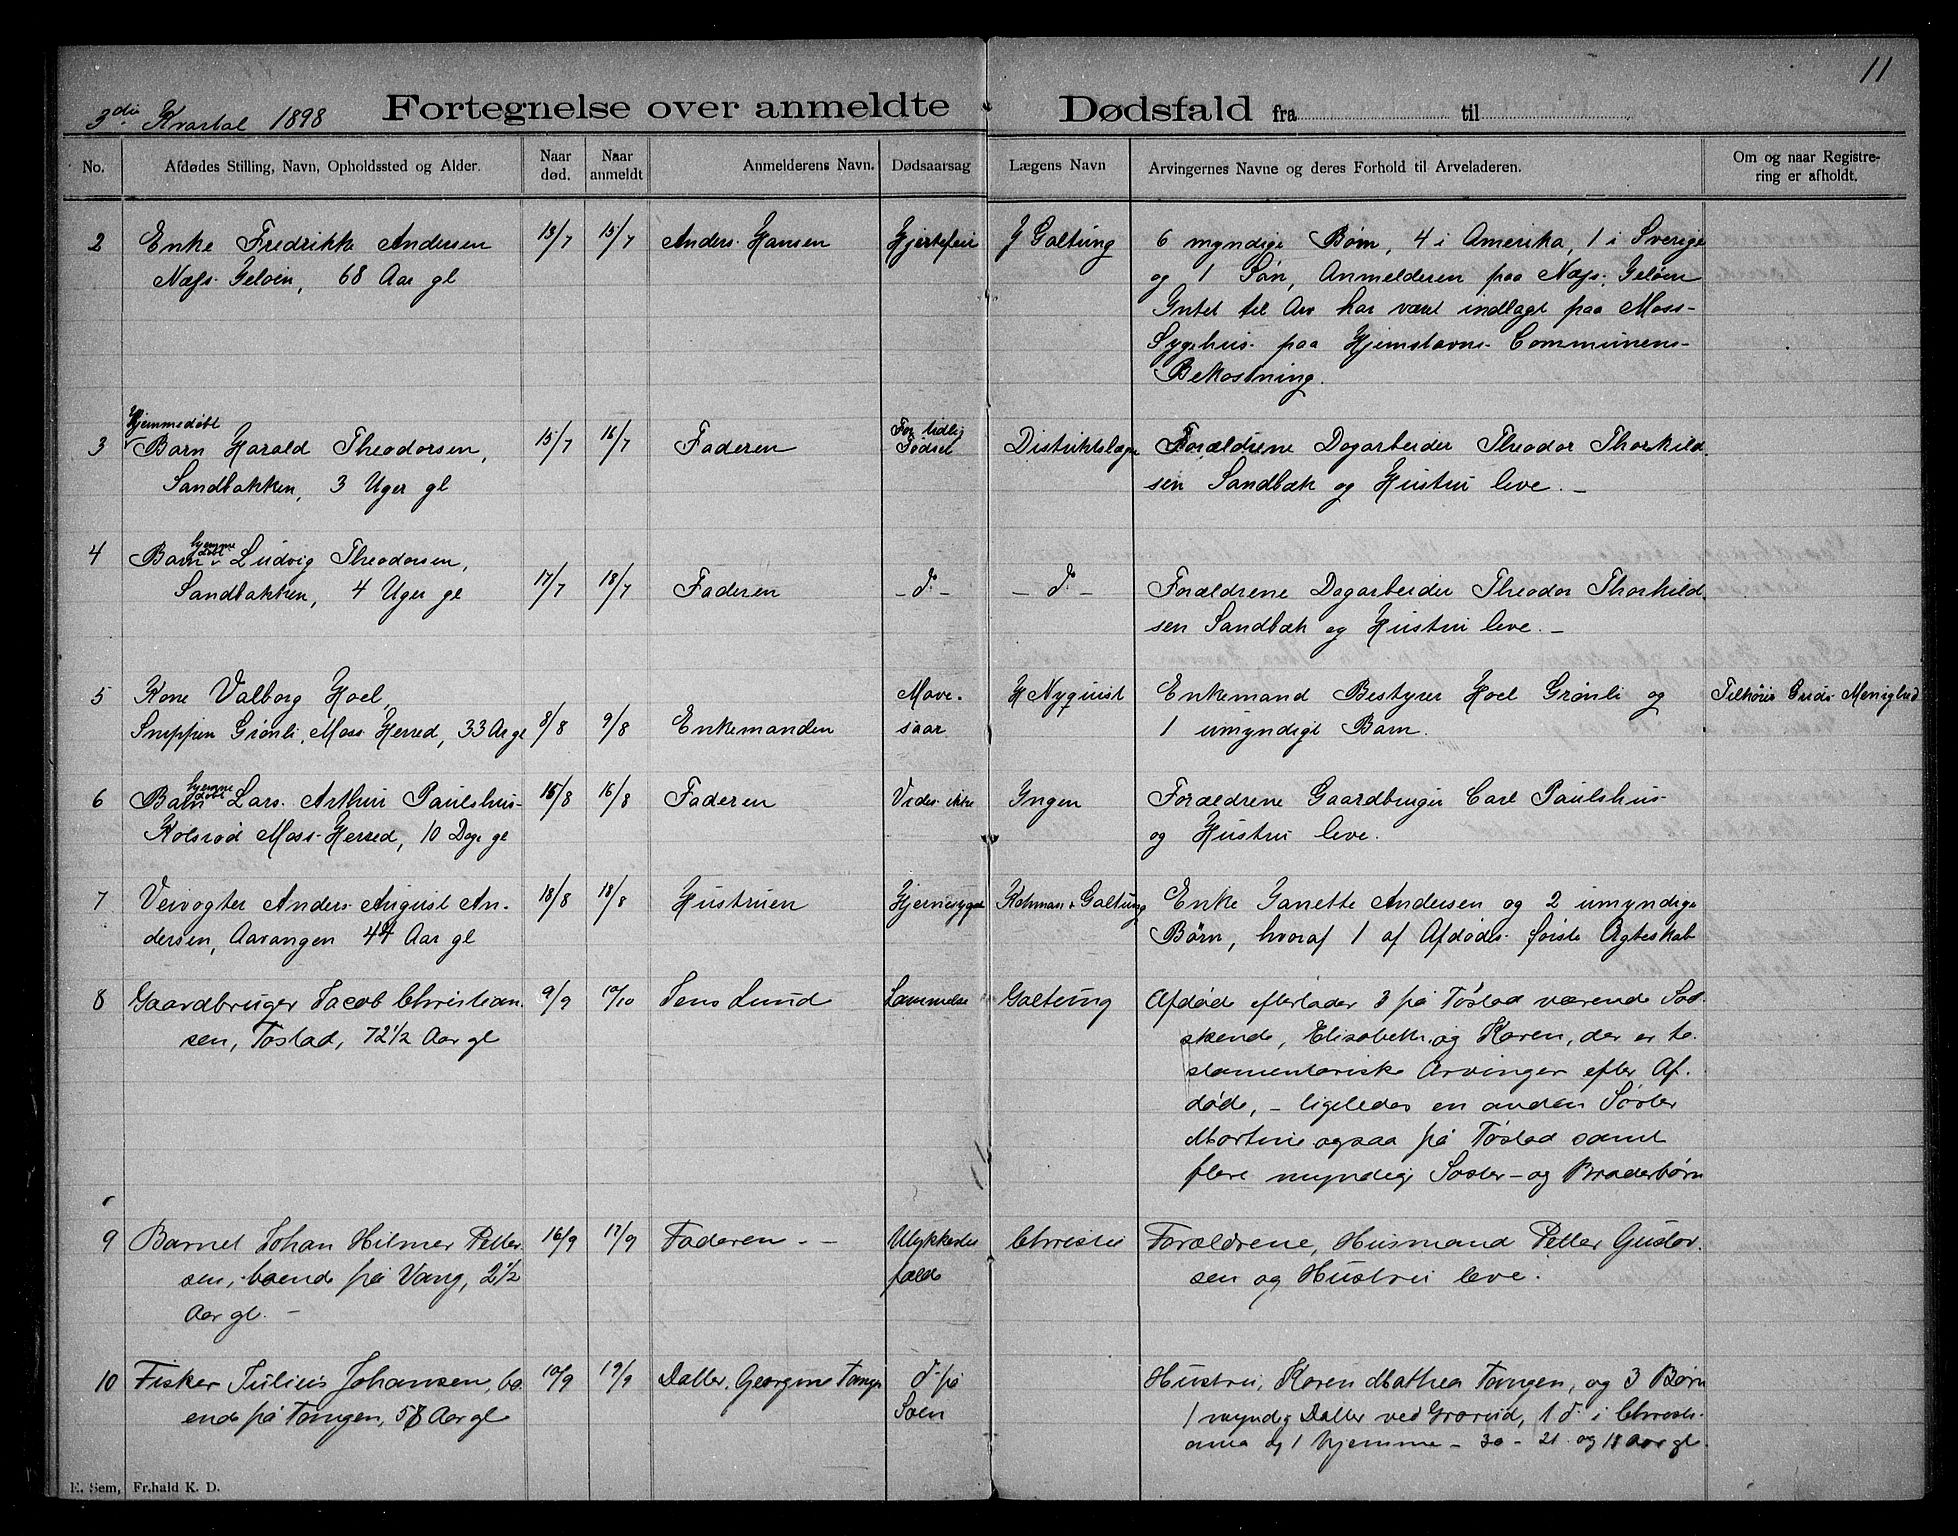 11
3die Kvartal 1898 Fortegnelse over anmeldte Dødsfald fra til
No. Afdødes Stilling, Navn, Opholdssted og Alder. Naar død. Naar anmeldt Anmelderens Navn. Dødsaarsag Lægens Navn Arvingernes Navne og deres Forhold til Arveladeren. Om og naar Registrering er afholdt.
2 Enke Fredrikke Andersen 13/7 15/7 Anders Hansen Hjertefeil J Galtung 6 myndige Børn, 4 i Amerika, 1 i Sverige
Næss Geløen, 68 Aar gl og 1 Søn, Anmelderen paa Næss, Geløen
Intet til Arv har været indlagt paa Moss
Sygehus paa Hjemstavns Communens
Bekostning.
Hjemmedøbt
3 Barn Harald Theodorsen, 15/7 16/7 Faderen For tidlig Fødsel Distriktslægen Forældrene Dagarbeider Theodor Thorkild-
Sandbakken, 3 Uger gl sen Sandbæk og Hustru leve. –
4 Barn hjemmedøbt Ludvig Theodorsen,
Sandbakken, 4 Uger gl 17/7 18/7 Faderen – do – – do – Forældrene Dagarbeider Theodor Thorkild
sen Sandbæk og Hustru leve. –
5 Kone Valborg Hoel, Mave- H Nyquist Enkemand Bestyrer Hoel Grønli og Tilhører Guds Menighed
Snippen Grønli, Moss Herred, 33 Aar gl 8/8 9/8 Enkemanden saar 1 umyndigt Barn.
6 Barn hjemmedøbt Lars Arthur Paulshus 15/8 16/8 Faderen Vides ikke Ingen Forældrene Gaardbruger Carl Paulshus
Kolsrød Moss Herred, 10 Dage gl og Hustru leve.
7 Veivogter Anders August An- 18/8 18/8 Hustruen Hjernesygd Kohman & Galtung Enke Janette Andersen og 2 umyndige
dersen, Aavangen 44 Aar gl Børn, hvoraf 1 af Afdødes første Ægteskab
8 Gaardbruger Jacob Christian- 9/9 10/10 Jens Lund Lammelse Galtung Afdøde efterlader 3 på Tøstad værende Søs-
sen, Tøstad, 72 1/2 Aar gl skende, Elisabeth og Karen, der er te-
stamentariske Arvinger efter Af-
døde, – ligeledes en anden Søster
Martine ogsaa på Tøstad samt
flere myndige Søster- og Broderbørn
9 Barnet Johan Hilmer Petter- 16/9 17/9 Faderen – – Ulykkestil- Christie Forældrene, Husmand Petter Gustav-
sen, boende på Vang, 2 1/2 fælde sen og Hustru leve.
Aar gl. –
10 Fisker Julius Johansen, bo- 10/9 19/9 Datter, Georgine Tangen d. på Hustru, Karen Mathea Tangen, og 3 Børn
ende på Tangen, 58 Aar gl Søen 1 myndig Datter ved Grorud, 1 do i Christi-
ania og 1 hjemme – 30 – 21 og 18 Aar gl.
E. Sem, Fr.hald K. D.